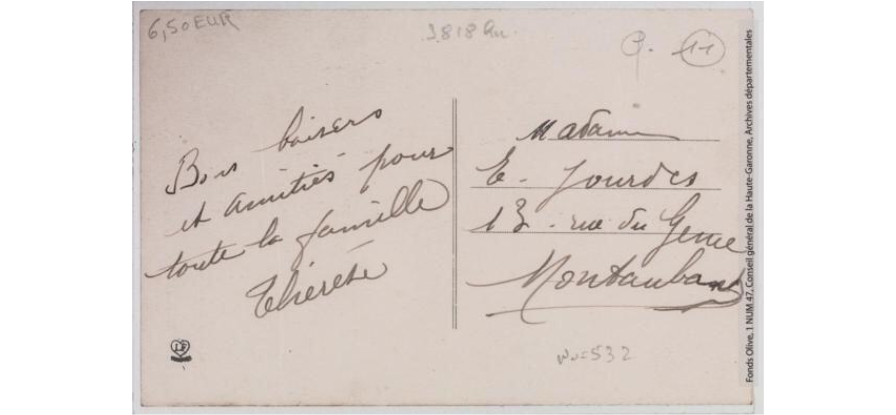 6,50 EUR
Bons baisers
et amitiés pour
toute la famille
Thérèse
Madame
E. Jourdes
13 rue du Génie
Montauban
11
532
Fonds Olive, 1 NUM 47, Conseil général de la Haute-Garonne, Archives départementales